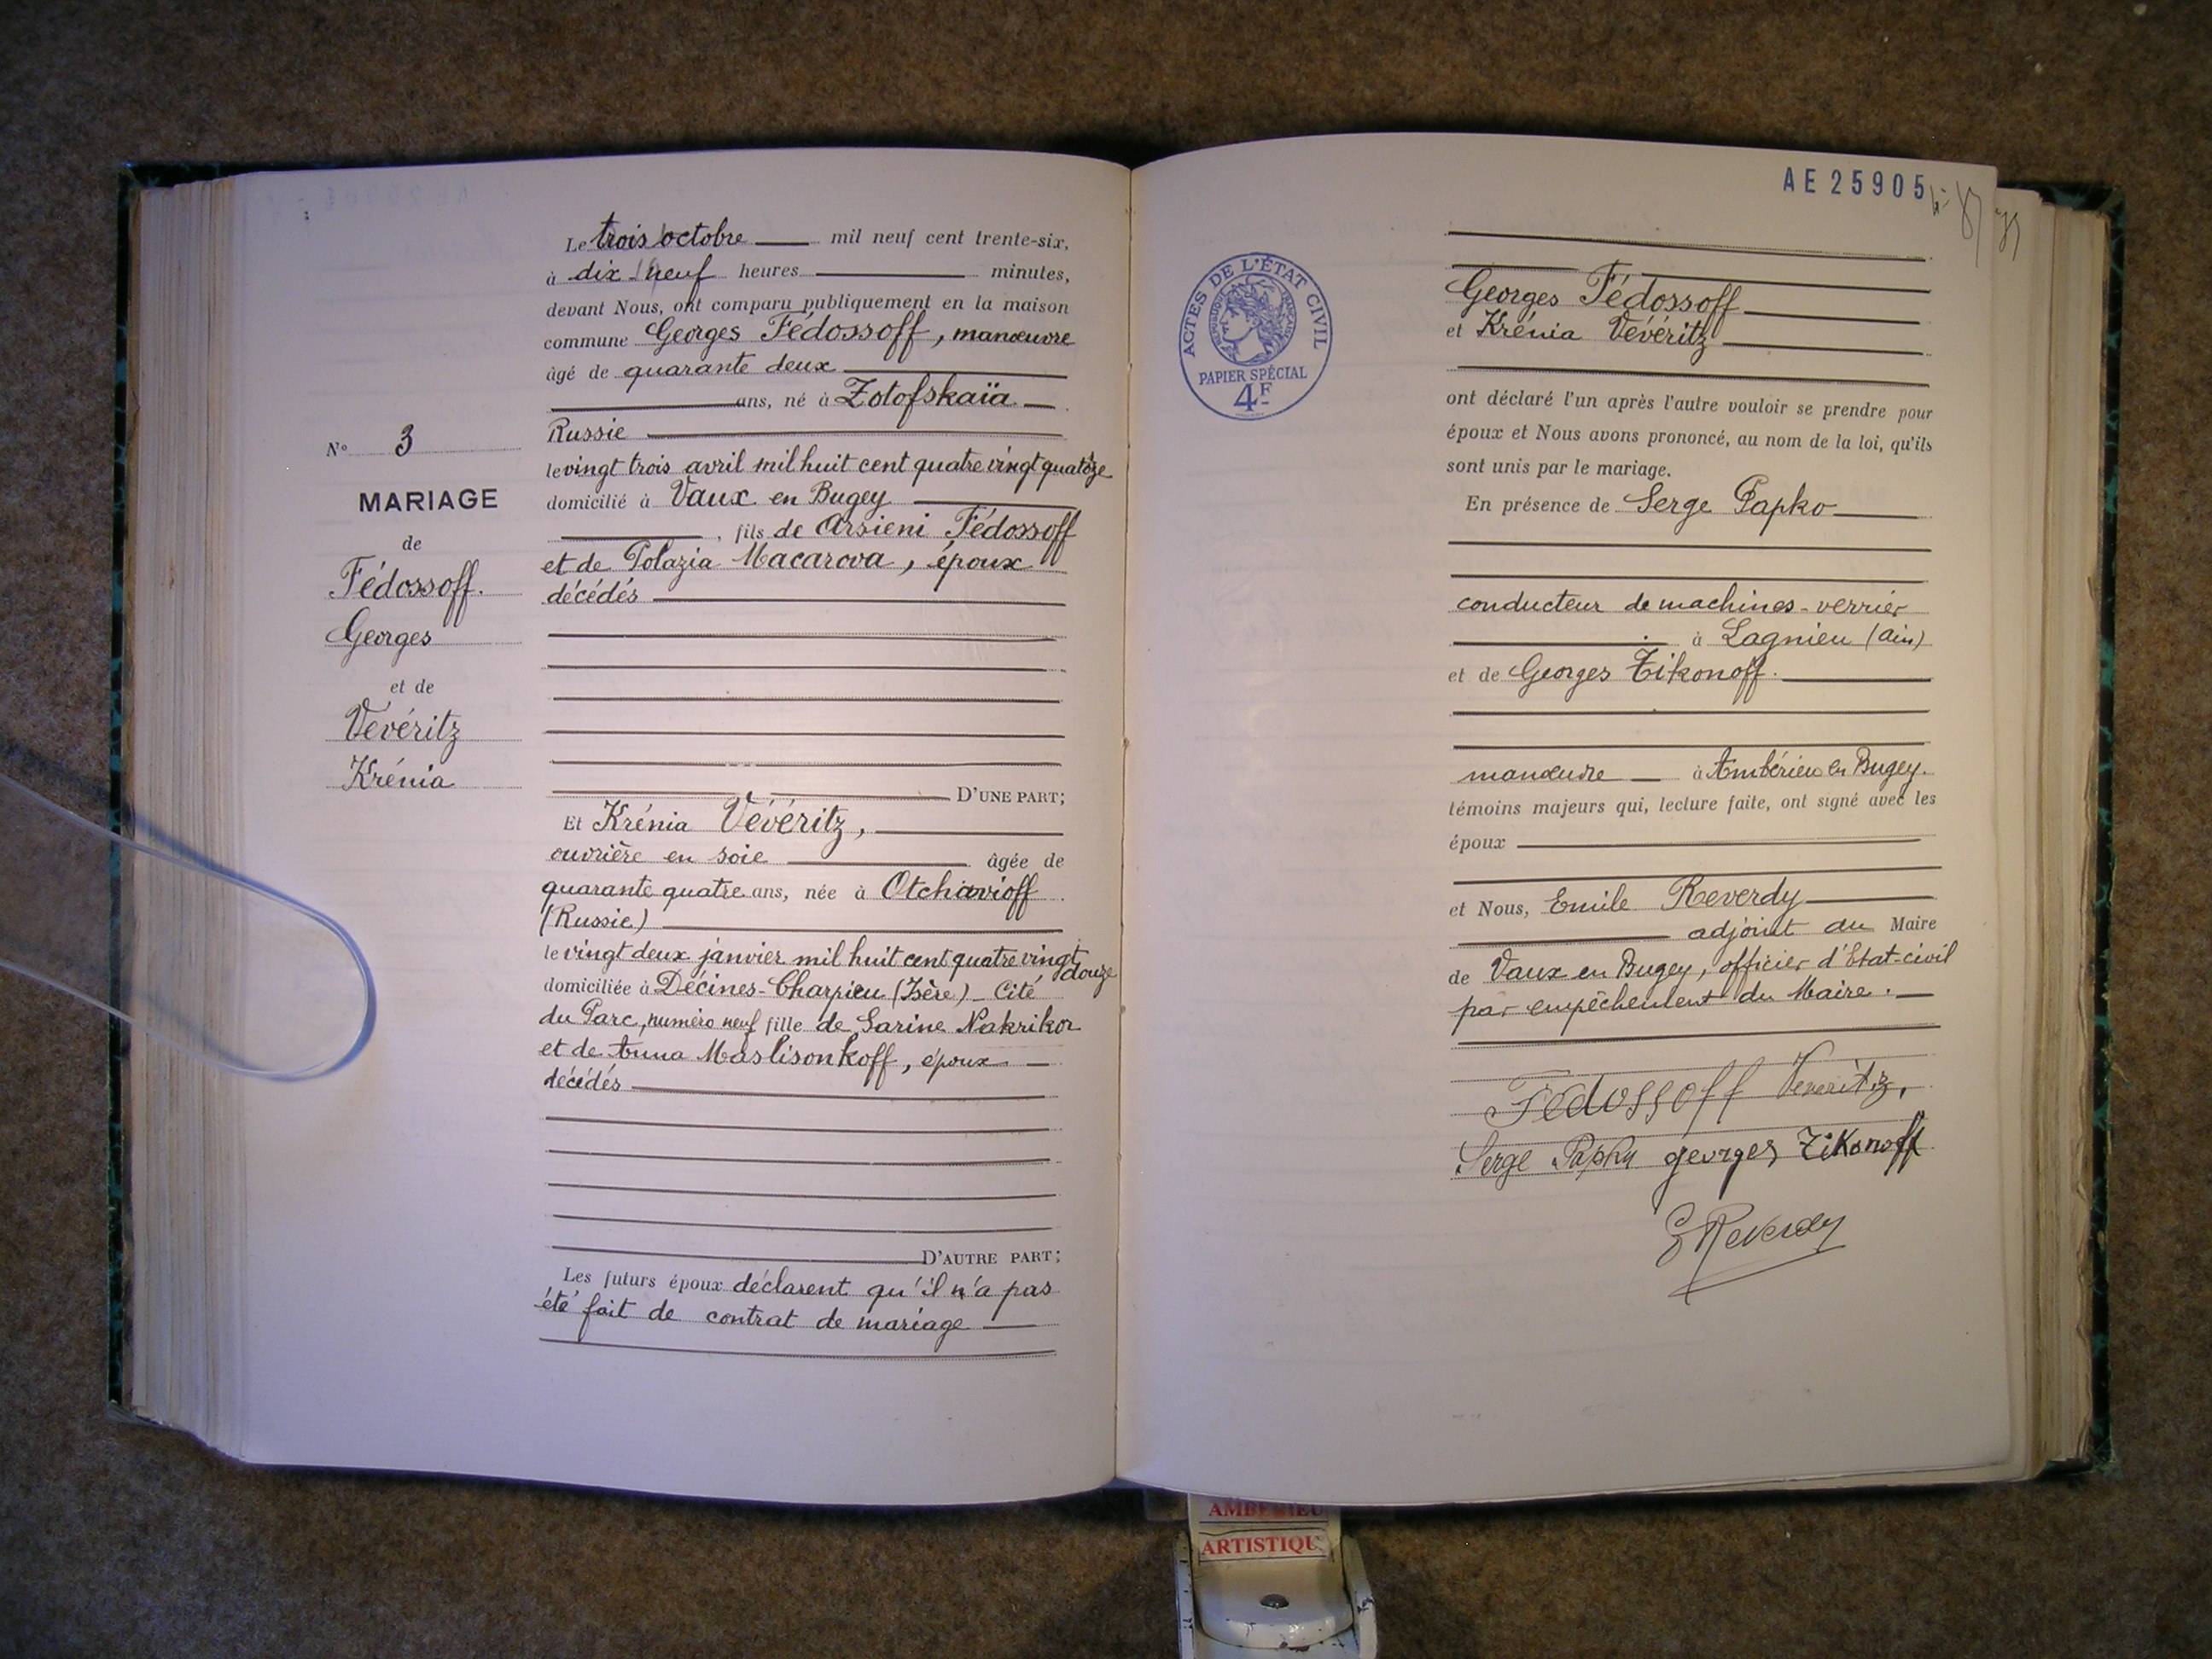 Le trois octobre mil neuf cent trente-six,
à dix neuf heures minutes,
devant Nous, ont comparu publiquement en la maison
commune Georges Fédossoff, manœuvre
âgé de quarante deux
ans, né à Zotofskaïa
Russie
le vingt trois avril mil huit cent quatre vingt quatoze
domicilié à Vaux en Bugey
, fils de Arsieni Fédossoff
et de Polazia Macarova, époux
décédés
N° 3
MARIAGE
de
Fédossoff.
Georges
et de
Vévéritz
Krénia
D'UNE PART;
Et Krénia Vévéritz,
ouvrière en soie âgée de
quarante quatre ans, née à Otchavioff
(Russie)
le vingt deux janvier mil huit cent quatre vingt
douze
domiciliée à Décines-Charpieu (Isère) - Cité
du Parc, numéro neuf fille de Sarine Nakrikor
et de Anna Maslisonkoff, époux
décédés
D'AUTRE PART;
Les futurs époux déclarent qu'il n'a pas
été fait de contrat de mariage
AE25905
ACTES DE L'ÉTAT CIVIL
RÉPUBLIQUE FRANÇAISE
PAPIER SPÉCIAL
4F
Georges Fédossoff
et Krénia Vévéritz
ont déclaré l'un après l'autre vouloir se prendre pour
époux et Nous avons prononcé, au nom de la loi, qu'ils
sont unis par le mariage.
En présence de Serge Papko
conducteur de machines-verrier
à Lagnieu (Ain)
et de Georges Tikonoff.
manœuvre à Ambérieu en Bugey.
témoins majeurs qui, lecture faite, ont signé avec les
époux
et Nous, Emile Reverdy
adjoint au Maire
de Vaux en Bugey, officier d'Etat-civil
par empêchement du Maire.
Fédossoff Veveritz,
Serge Papko georges Tikonoff
E Reverdy
AMBERIEU
ARTISTIQU